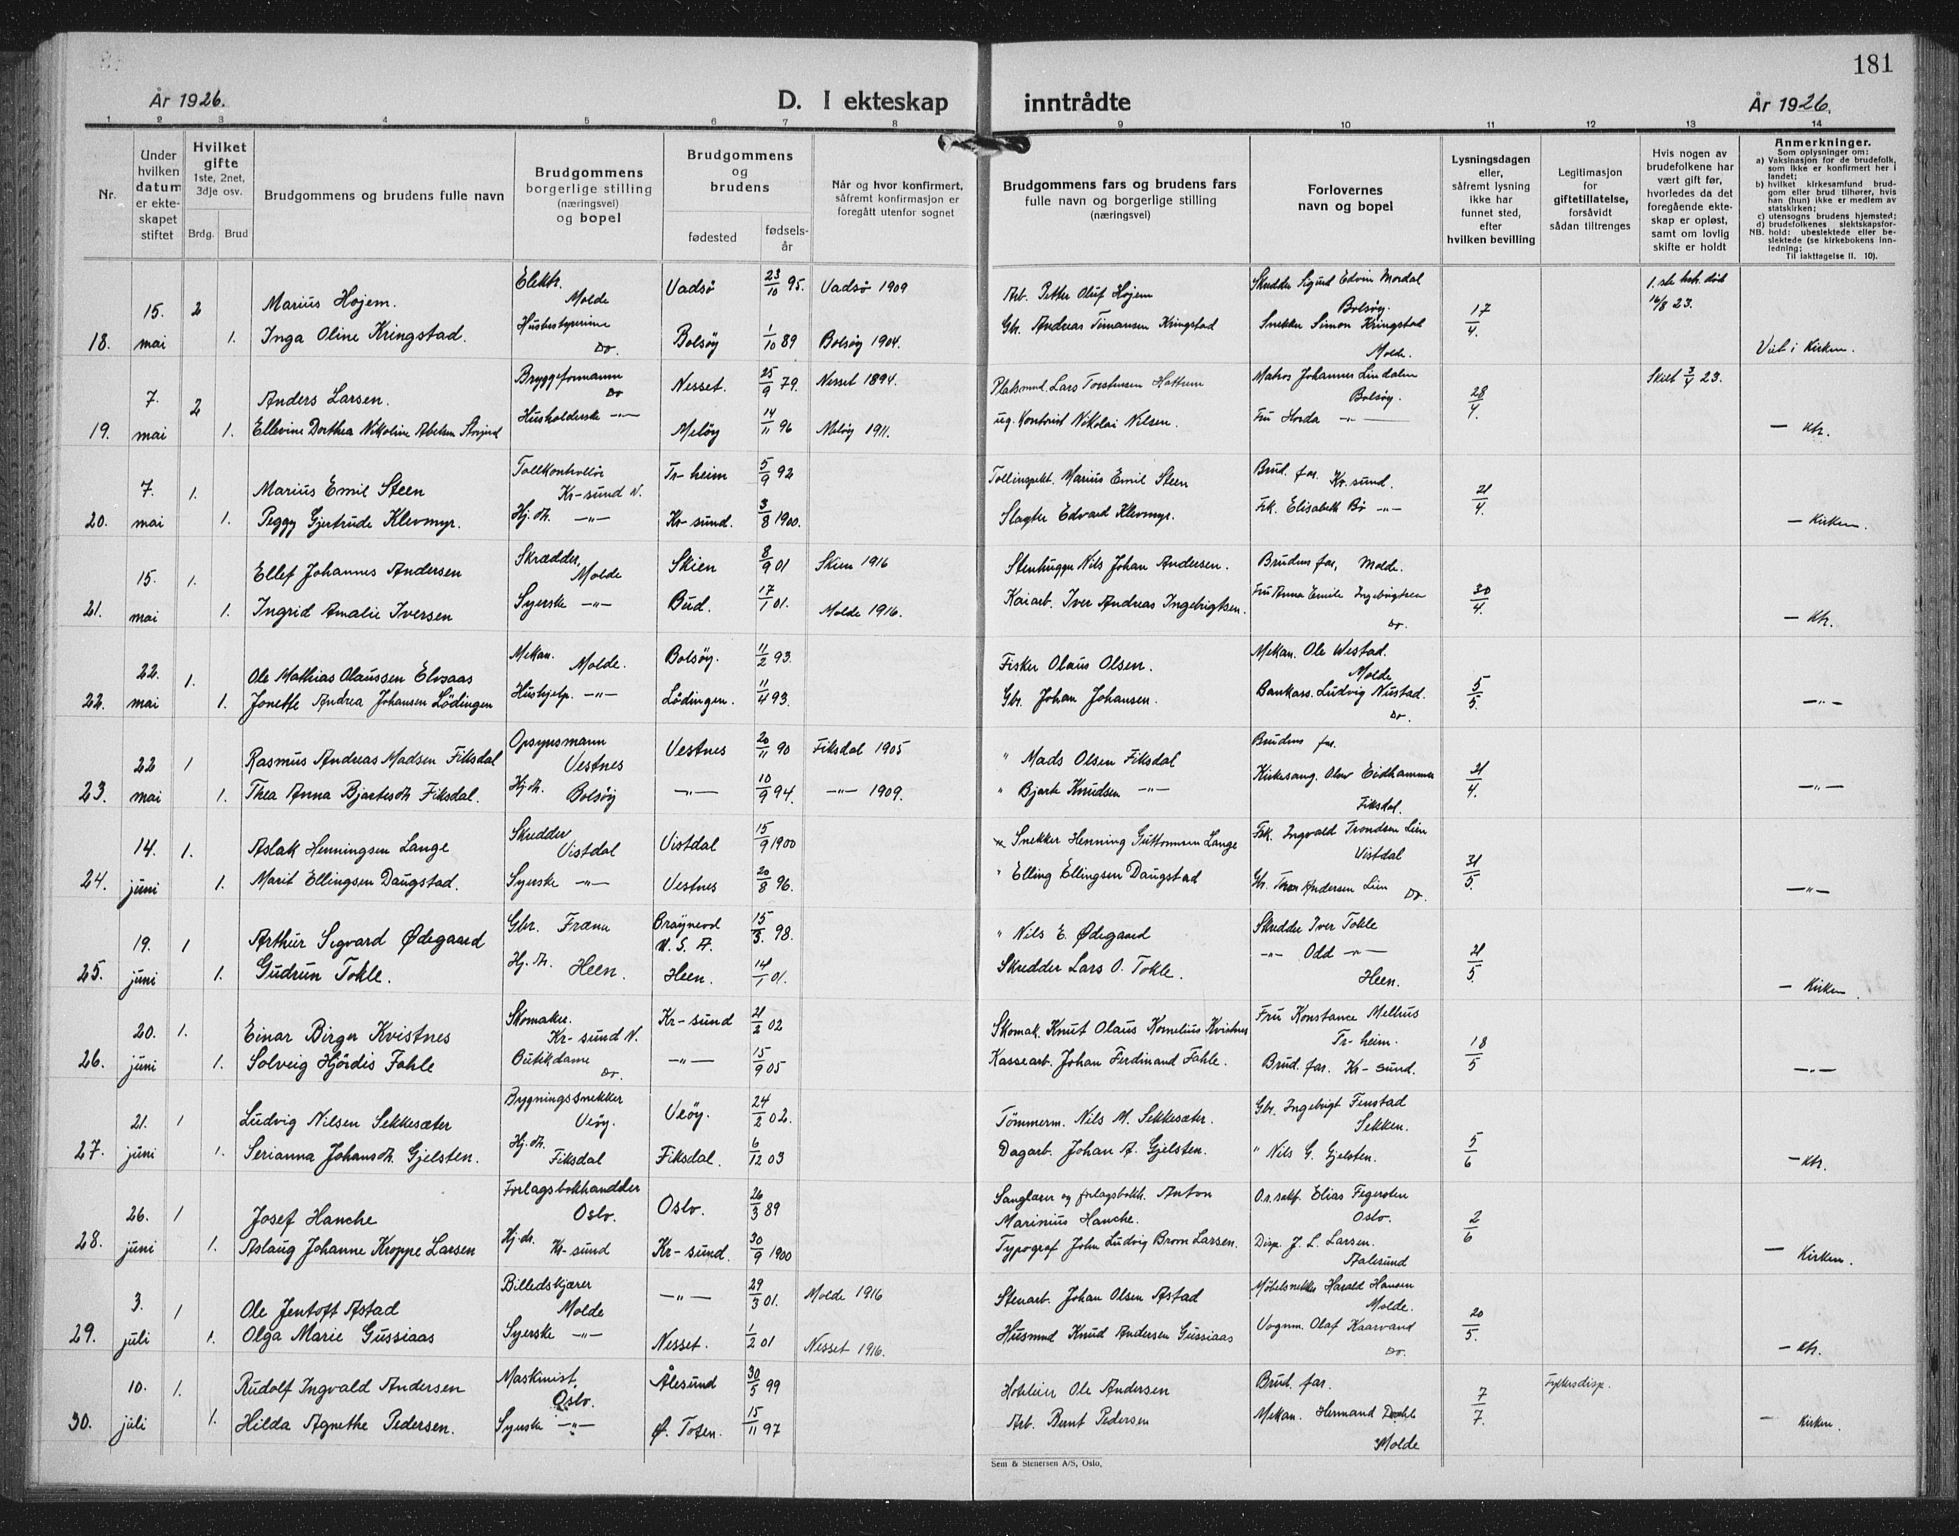 181
År 1926.
D. I ekteskap inntrådte
År 1926.
1 2 3 4 5 6 7 8 9 10 11 12 13 14
Nr.
Under hvilken datum er ekteskapet stiftet
Hvilket gifte
1ste, 2net, 3dje osv.
Brdg. Brud
Brudgommens og brudens fulle navn
Brudgommens borgerlige stilling (næringsvei) og bopel
Brudgommens og brudens
fødested
fødselsår
Når og hvor konfirmert, såfremt konfirmasjon er foregått utenfor sognet
Brudgommens fars og brudens fars fulle navn og borgerlige stilling (næringsvei)
Forlovernes navn og bopel
Lysningsdagen eller, såfremt lysning ikke har funnet sted, efter hvilken bevilling
Legitimasjon for giftetillatelse, forsåvidt sådan tiltrenges
Hvis nogen av brudefolkene har vært gift før, hvorledes da det foregående ekteskap er opløst, samt om lovlig skifte er holdt
Anmerkninger.
Som oplysninger om:
a) Vaksinasjon for de brudefolk, som ikke er konfirmert her i landet;
b) hvilket kirkesamfund brudgom eller brud tilhører, hvis han (hun) ikke er medlem av statskirken;
c) utensogns brudens hjemsted;
d) brudefolkenes slektskapsforhold: ubeslektede eller beslektede (se kirkebokens innledning;
NB. Til iakttagelse II. 10).
18. 15. mai 2 Marius Hojem. Elektr. Molde Vadsö 23/10 95. Vadsö 1909 Arb. Petter Oluf Hojem Skredder Sigurd Edvin Mordal Bolsöy. 17/4. 1.ste hstr. död 16/8 23.
1. Inga Oline Kringstad. Husbestyrerinne Do. Bolsöy 1/10 89 Bolsöy 1904. Gbr. Andreas Timansen Kringstad Snekker Simon Kringstad Molde. Viet i Kirken.
19. 7. mai 2 Anders Larsen. Bryggeformann Do Nesset. 25/9 79. Nesset 1894. Platsmnd. Lars Torstensen Hattrem Matros Johannes Lindalen Bolsöy. 28/4. Skilt 3/4 23.
1. Ellevine Dorthea Nikoline Abelsen Husholderske -"- Melöy 14/11 96 Melöy 1911. ug. Kontorist Nikolai Nilsen. Fru Horda -"- — Ktr.
20. 7. mai 1. Marius Emil Steen Tollkontrollör Kr-sund N. Tr-heim 5/9 92 Tollinspekt. Marius Emil Steen Brud. far. Kr. sund. 21/4.
1. Peggy Gjertrude Klevmyr. Hj. dt. -"- Kr-sund. 3/8 1900. Slagter Edvard Klevmyr. Frk. Elisabeth Bö -"- — Kirken.
21. 15. mai 1. Ellef Johannes Andersen Skrædder, Molde Skien 8/9 01 Skien 1916 Stenhugger Nils Johan Andersen. Brudens far, Molde. 30/4.
1. Ingrid Amalie Iversen Syerske -"- Bud. 17/1 01. Molde 1916. Kaiarb. Iver Andreas Ingebrigtsen. Fru Anna Emilie Ingebrigtsen Do. — Ktr.
22. 22. mai 1. Ole Mathias Olaussen Elvsaas Mekan. Molde. Bolsöy. 11/2 93. Fisker Olaus Olsen. Mekan. Ole Westad. Molde 5/5.
1. Jonette Andrea Johansen Lödingen Hushjelp. -"- Lödingen. 11/4 93. Gbr. Johan Johansen. Bankass. Ludvig Nustad. Do. -"-
23. 22 mai 1 Rasmus Andreas Madsen Fiksdal Opsynsmann Vestnes Vestnes 20/11 90 Fiksdal 1905 " Mads Olsen Fiksdal Brudens far. 21/4.
1. Thea Anna Bjartesdt. Fiksdal. Hj. dt. Bolsöy -"- 10/9 94. -"- 1909. " Bjart Knudsen -"- Kirkesang. Olav Eidhammer Fiksdal. -"-
24. 14. juni 1. Aslak Henningsen Lange Skredder Vistdal Vistdal 15/9 1900 Snekker Henning Guttormsen Lange Frk. Ingvald Trondsen Lien Vistdal 31/5.
1. Marit Ellingsen Daugstad. Syerske -"- Vestnes 20/8 96. " Elling Ellingsen Daugstad Gbr. Thor Andersen Lien Do. -"-
25. 19. juni 1 Arthur Sigvard Ødegaard Gbr. Fræna U. S. A. 15/3. 98. " Nils E. Ødegaard Skredder Iver Tokle 21/5.
1. Gudrun Tokle. Hj. dt. Heen. Heen. 14/1 01. Skredder Lars O. Tokle. -"- Odd -"- Heen. — Kirken.
26. 20. juni 1. Einar Birger Kvistnes Skomaker. Kr-sund N. Kr-sund 21/2 02 Skomak. Knut Olaus Kornelius Kvistnes Fru Konstance Melhus Tr-heim. 18/5
1. Solveig Hjördis Fahle Butikdame Do. -"- 15/9 05 Kassearb. Johan Ferdinand Fahle. Brud. far. Kr-sund. -"-
27. 21. juni 1 Ludvig Nilsen Sekkesæter Bygningssnekker Veöy. Veöy. 24/2 02. Tömmerm. Nils M. Sekkesæter. Gbr. Ingebrigt Fenstad Sekken. 5/6
1. Serianna Johansdt. Gjelsten. Hj. dt. Fiksdal Fiksdal. 6/12 03 Dagarb. Johan A. Gjelsten. " Nils G. Gjelsten. — Ktr.
28. 26. juni 1 Josef Hanche Forlagsbokhandler Oslo. Oslo. 26/3 89 Sanglærer og forlagsbokh. Anton Marinius Hanche. O.r.sakf. Elias Fegersten Oslo. 2/6
1. Aslaug Johanne Kroppe Larsen Hj. dt. Kr-sund Kr-sund. 30/9 1900 Typograf John Ludvig Brorn Larsen. Disp. J. L. Larsen. Aalesund — Kirken.
29. 3. juli 1 Ole Jentoft Astad Billedskjærer Molde -"- 29/3 01. Molde 1916 Stenarb. Johan Olsen Astad Möbelsnekker Harald Hansen Molde. 20/5.
1. Olga Marie Gussiaas Syerske -"- Nesset. 1/2 01 Nesset 1916. Husmnd Knud Andersen Gussiaas Vognm. Olaf Kaarvand Do. — Ktr.
30. 10. juli 1. Rudolf Ingvald Andersen Maskinist. Oslo. Ålesund 30/5 99 Hotelier Ole Andersen Brud. far. 7/7. Fylkesdisp.
1. Hilda Agnethe Pedersen. Syerske -"- Ø. Toten. 15/11 97 Arb. Bernt Pedersen Mekan. Hermand Dahle Molde — Kirken
Sem & Stenersen A/S, Oslo.